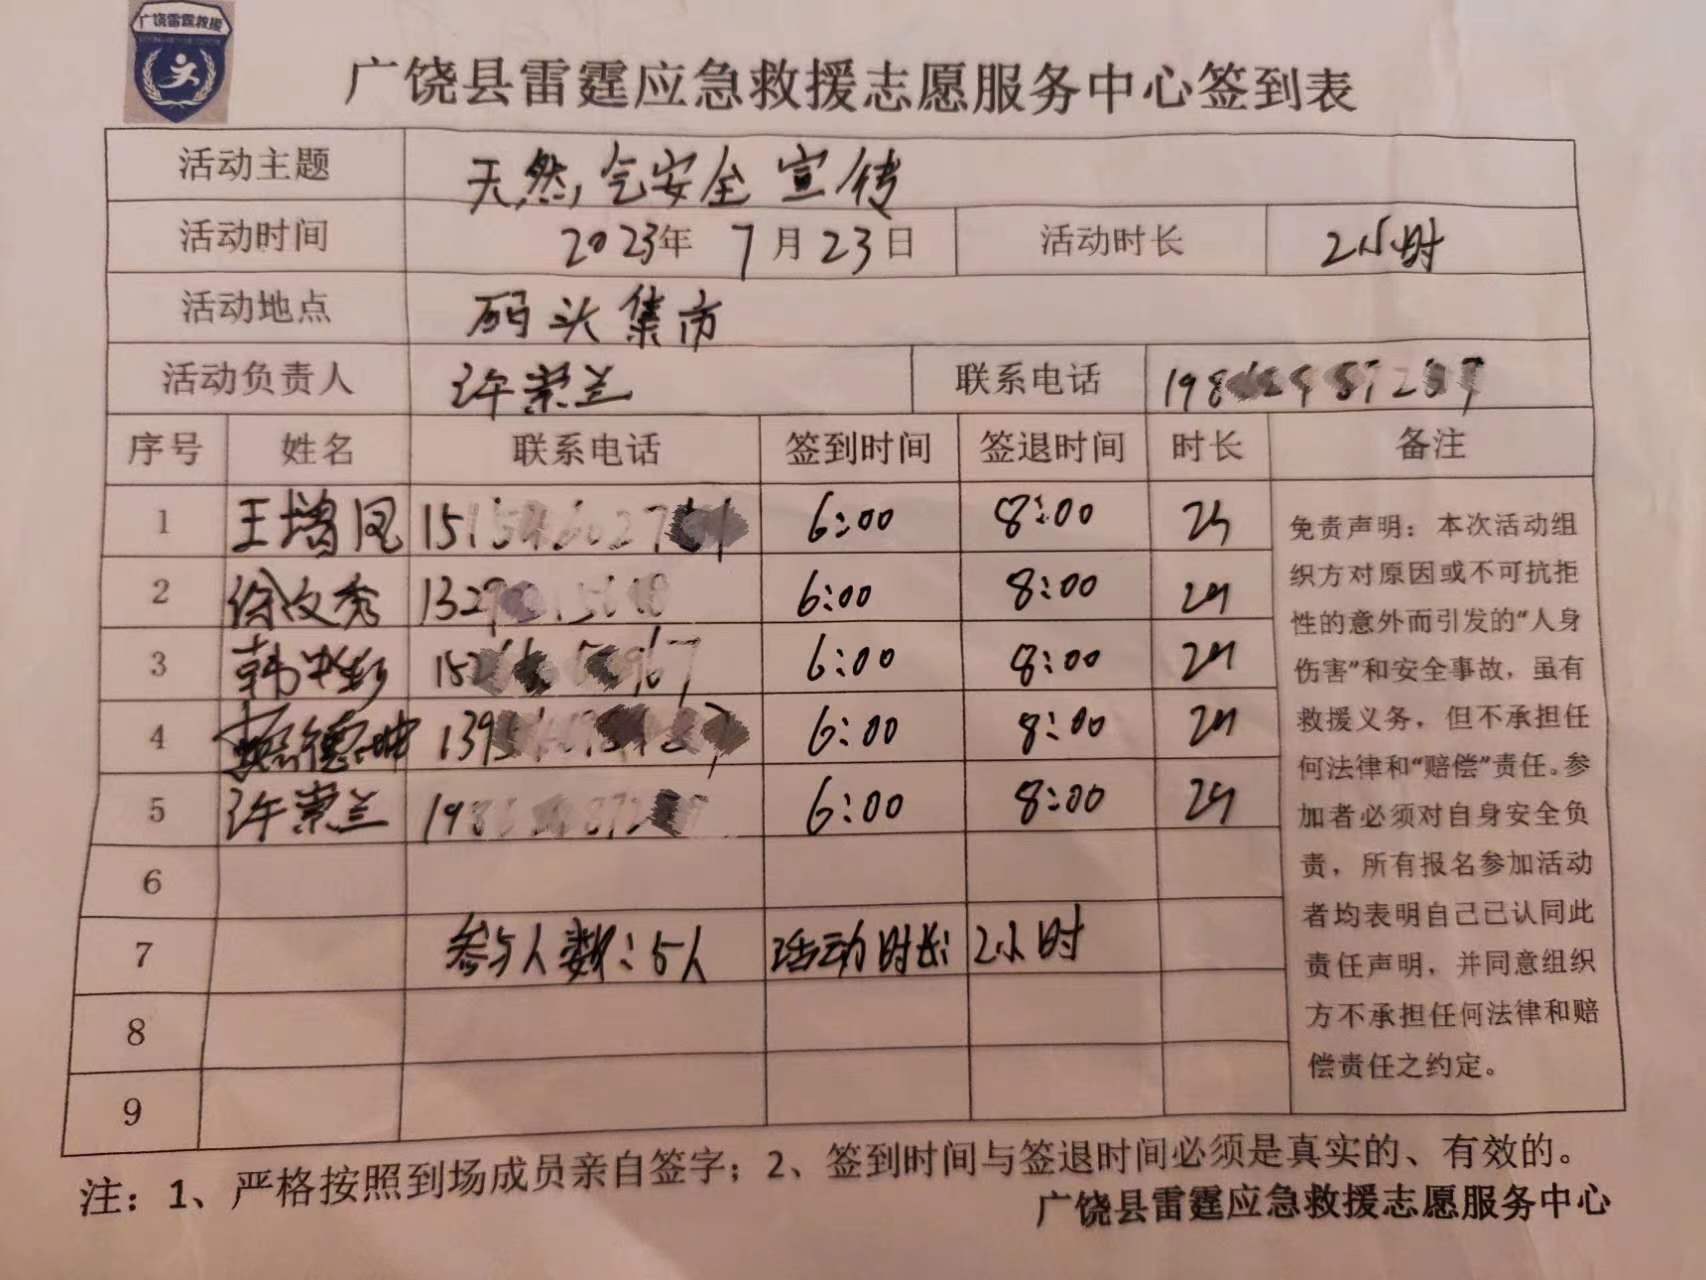 广饶雷霆救援
广饶县雷霆应急救援志愿服务中心签到表
活动主题 天然气安全宣传
活动时间 2023年 7月23日 活动时长 2小时
活动地点 码头集市
活动负责人 许崇兰 联系电话 198
序号 姓名 联系电话 签到时间 签退时间 时长 备注
1 王增凤 151 6:00 8:00 2h
2 徐文秀 132 6:00 8:00 2h
3 韩 152 967 6:00 8:00 2h
4 德坤 139 6:00 8:00 2h
5 许崇兰 198 6:00 8:00 2h
6
7 参与人数:5人 活动时长:2小时
8
9
免责声明：本次活动组
织方对原因或不可抗拒
性的意外而引发的“人身
伤害”和安全事故，虽有
救援义务，但不承担任
何法律和“赔偿”责任。参
加者必须对自身安全负
责，所有报名参加活动
者均表明自己已认同此
责任声明，并同意组织
方不承担任何法律和赔
偿责任之约定。
注：1、严格按照到场成员亲自签字；2、签到时间与签退时间必须是真实的、有效的。
广饶县雷霆应急救援志愿服务中心